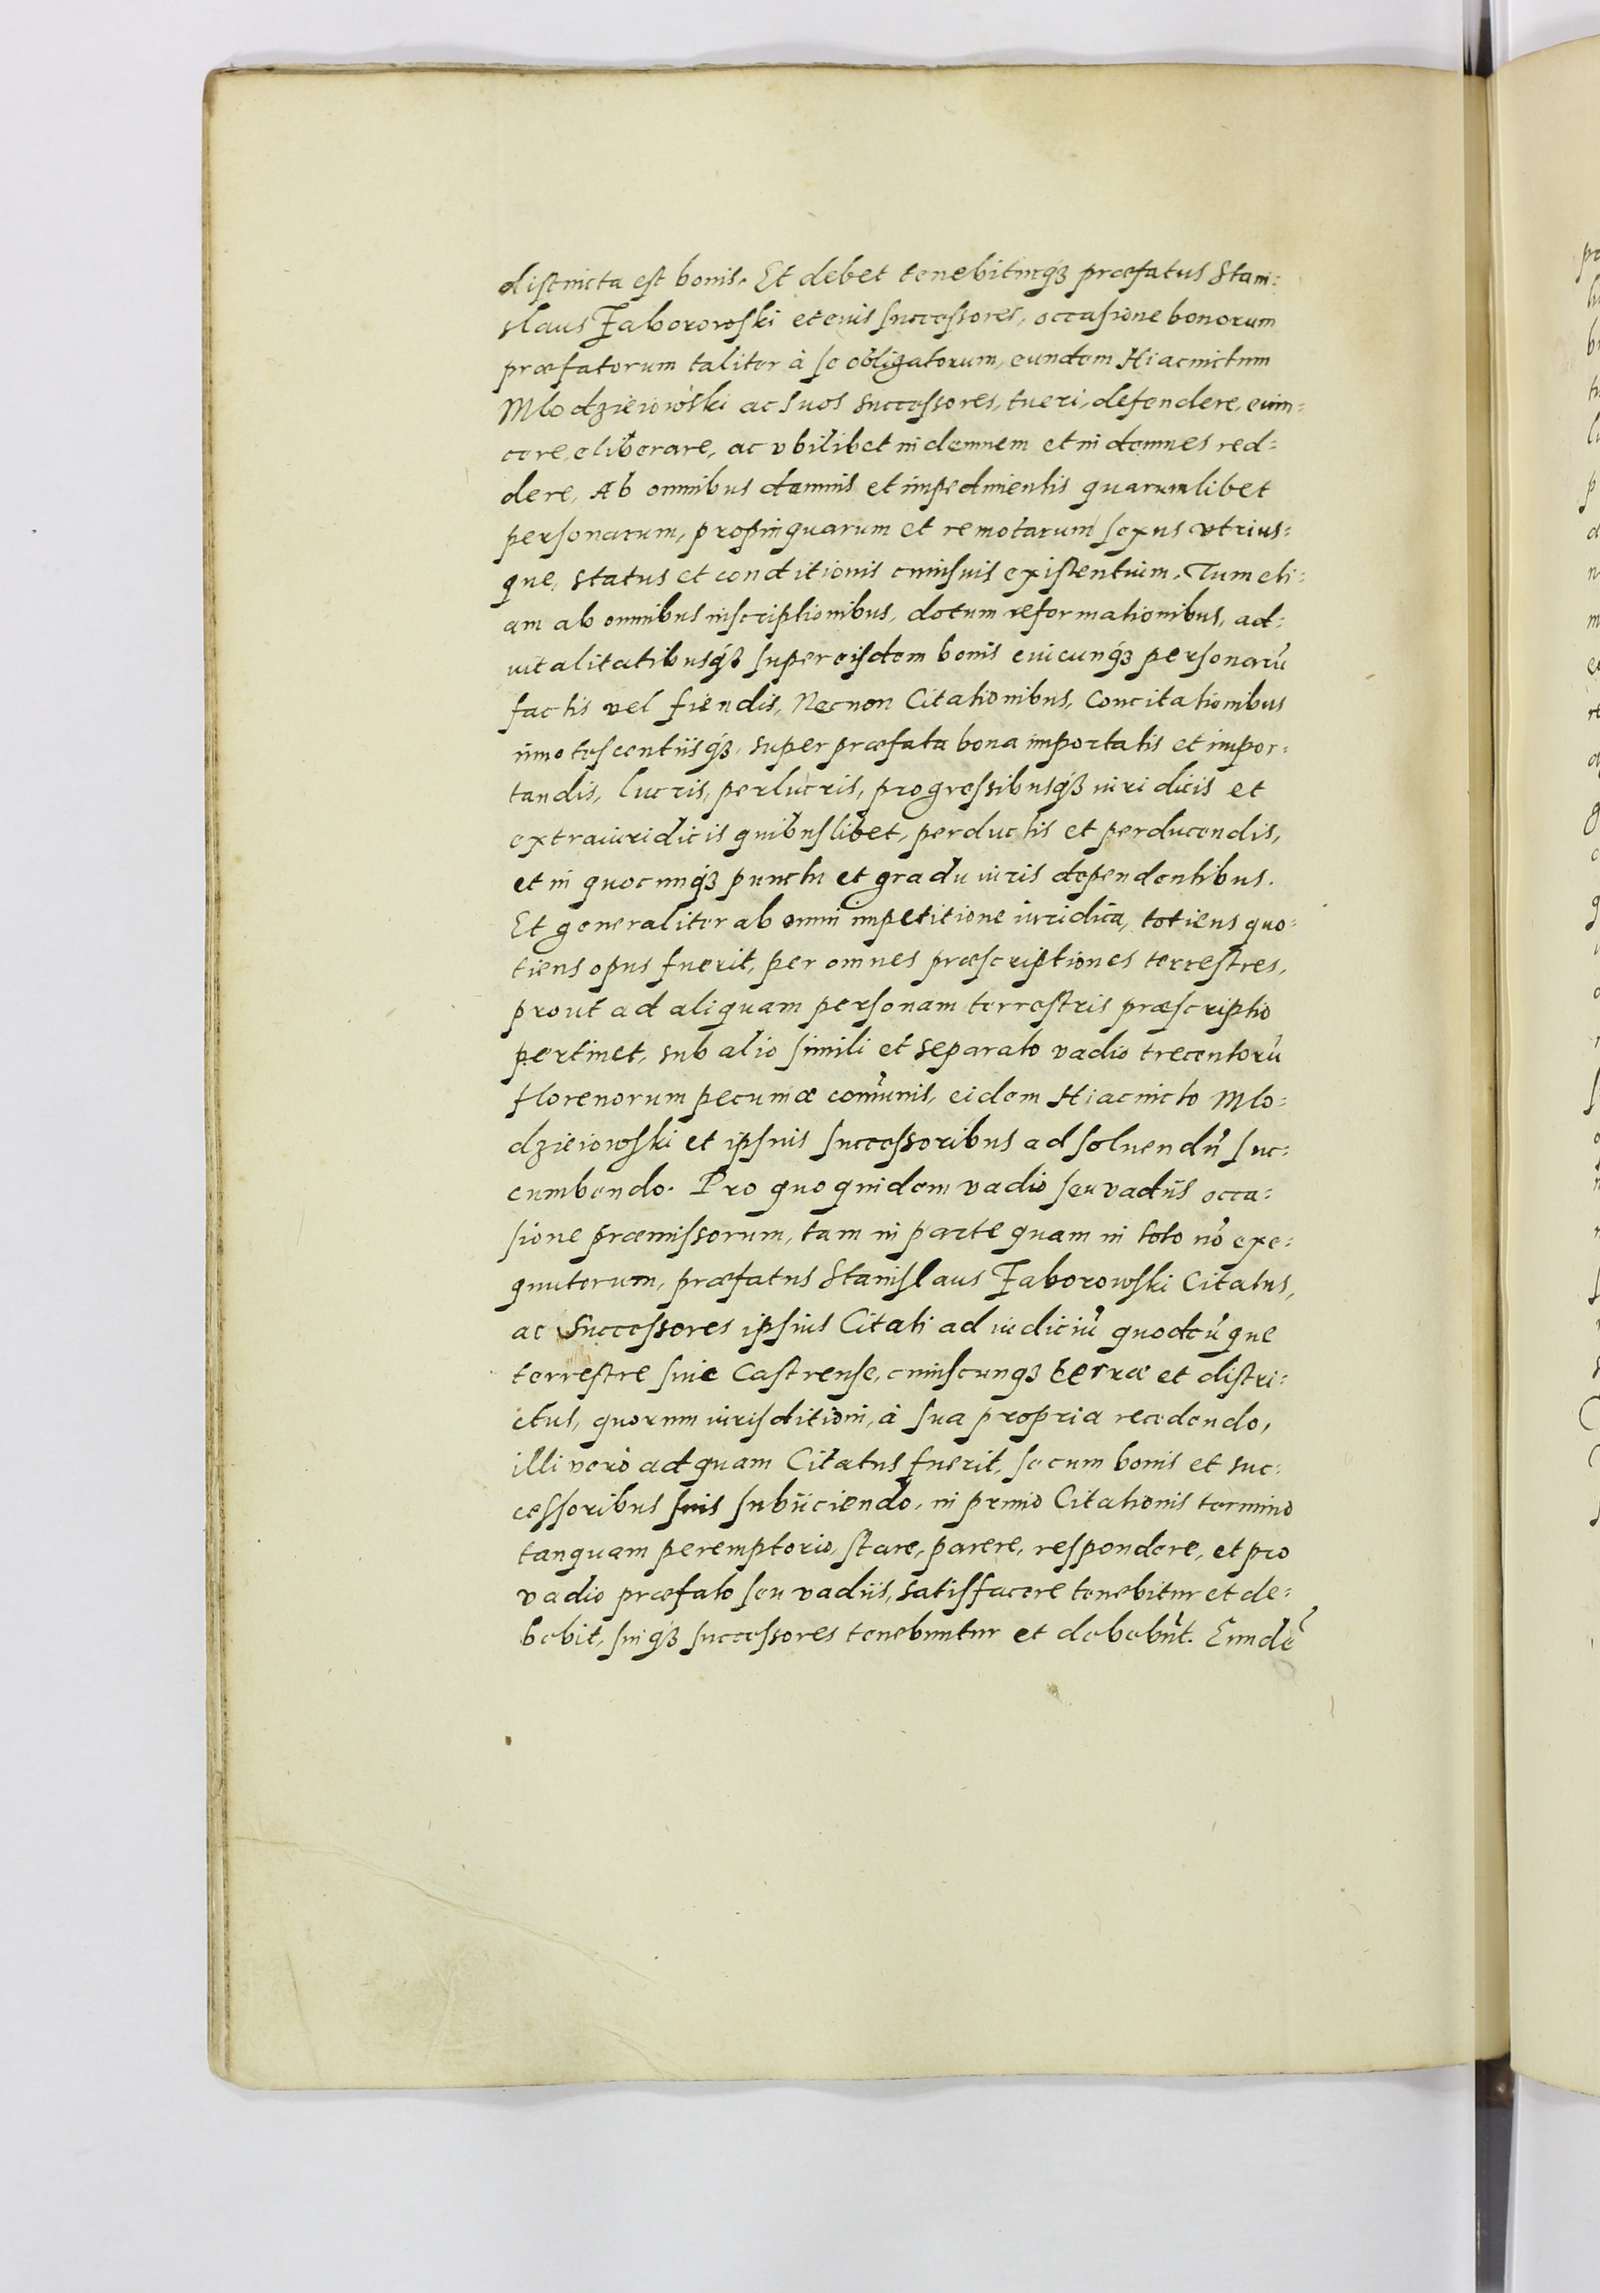 distincta est bonis. Et debet tenebiturq́ꝫ præfatus Stani:
slaus Zaborowski et eius successores, occasione bonorum
præfatorum taliter à se obligatorum, eundem Hiacinctum
Mlodzieiowski ac suos successores, tueri, defendere, euin:
cere, eliberare, ac vbilibet indemnem et indemnes red:
dere, Ab omnibus damnis et impedimentis quarumlibet
personarum, propinquarum et remotarum sexus vtrius:
que, status et conditionis cuiusuis existentium. Tum eti:
am ab omnibus inscriptionibus, dotum reformationibus, ad:
uitalitatibusq́ꝫ super eisdem bonis cuicunq́ꝫ personarũ
factis vel fiendis, Necnon Citationibus, Concitationibus
innotescentiisq́ꝫ, super præfata bona importatis et impor:
tandis, lucris, perlucris, progressibusq́ꝫ iuridicis et
extraiuridicis quibuslibet, perductis et perducendis,
et in quocunq́ꝫ punctu et gradu iuris dependentibus.
Et generaliter ab omni impetitione iuridica, totiens quo:
tiens opus fuerit, per omnes præscriptiones terrestres,
prout ad aliquam personam terrestris præscriptio
pertinet, sub alio simili et separato vadio trecentorũ
florenorum pecuniæ com̃unis, eidem Hiacincto Mlo:
dzieiowski et ipsius successoribus ad soluendũ suc:
cumbendo. Pro quo quidem vadio seu vadiis occa:
sione præmissorum, tam in parte quam in toto nõ exe:
quutorum, præfatus Stanislaus Zaborowski Citatus,
ac Successores ipsius Citati ad iudiciũ quodcũque
terrestre siue Castrense, cuiuscunqꝫ terræ et distri:
ctus, quorum iurisditioni, à sua propria recedendo,
illi verò ad quam Citatus fuerit, se cum bonis et suc:
cessoribus suis subiiciendo, in primo Citationis termino
tanquam peremptorio, stare, parere, respondere, et pro
vadio præfato seu vadiis, satisfacere tenebitur et de:
bebit, suiq́ꝫ successores tenebuntur et debebũt. Eundẽ